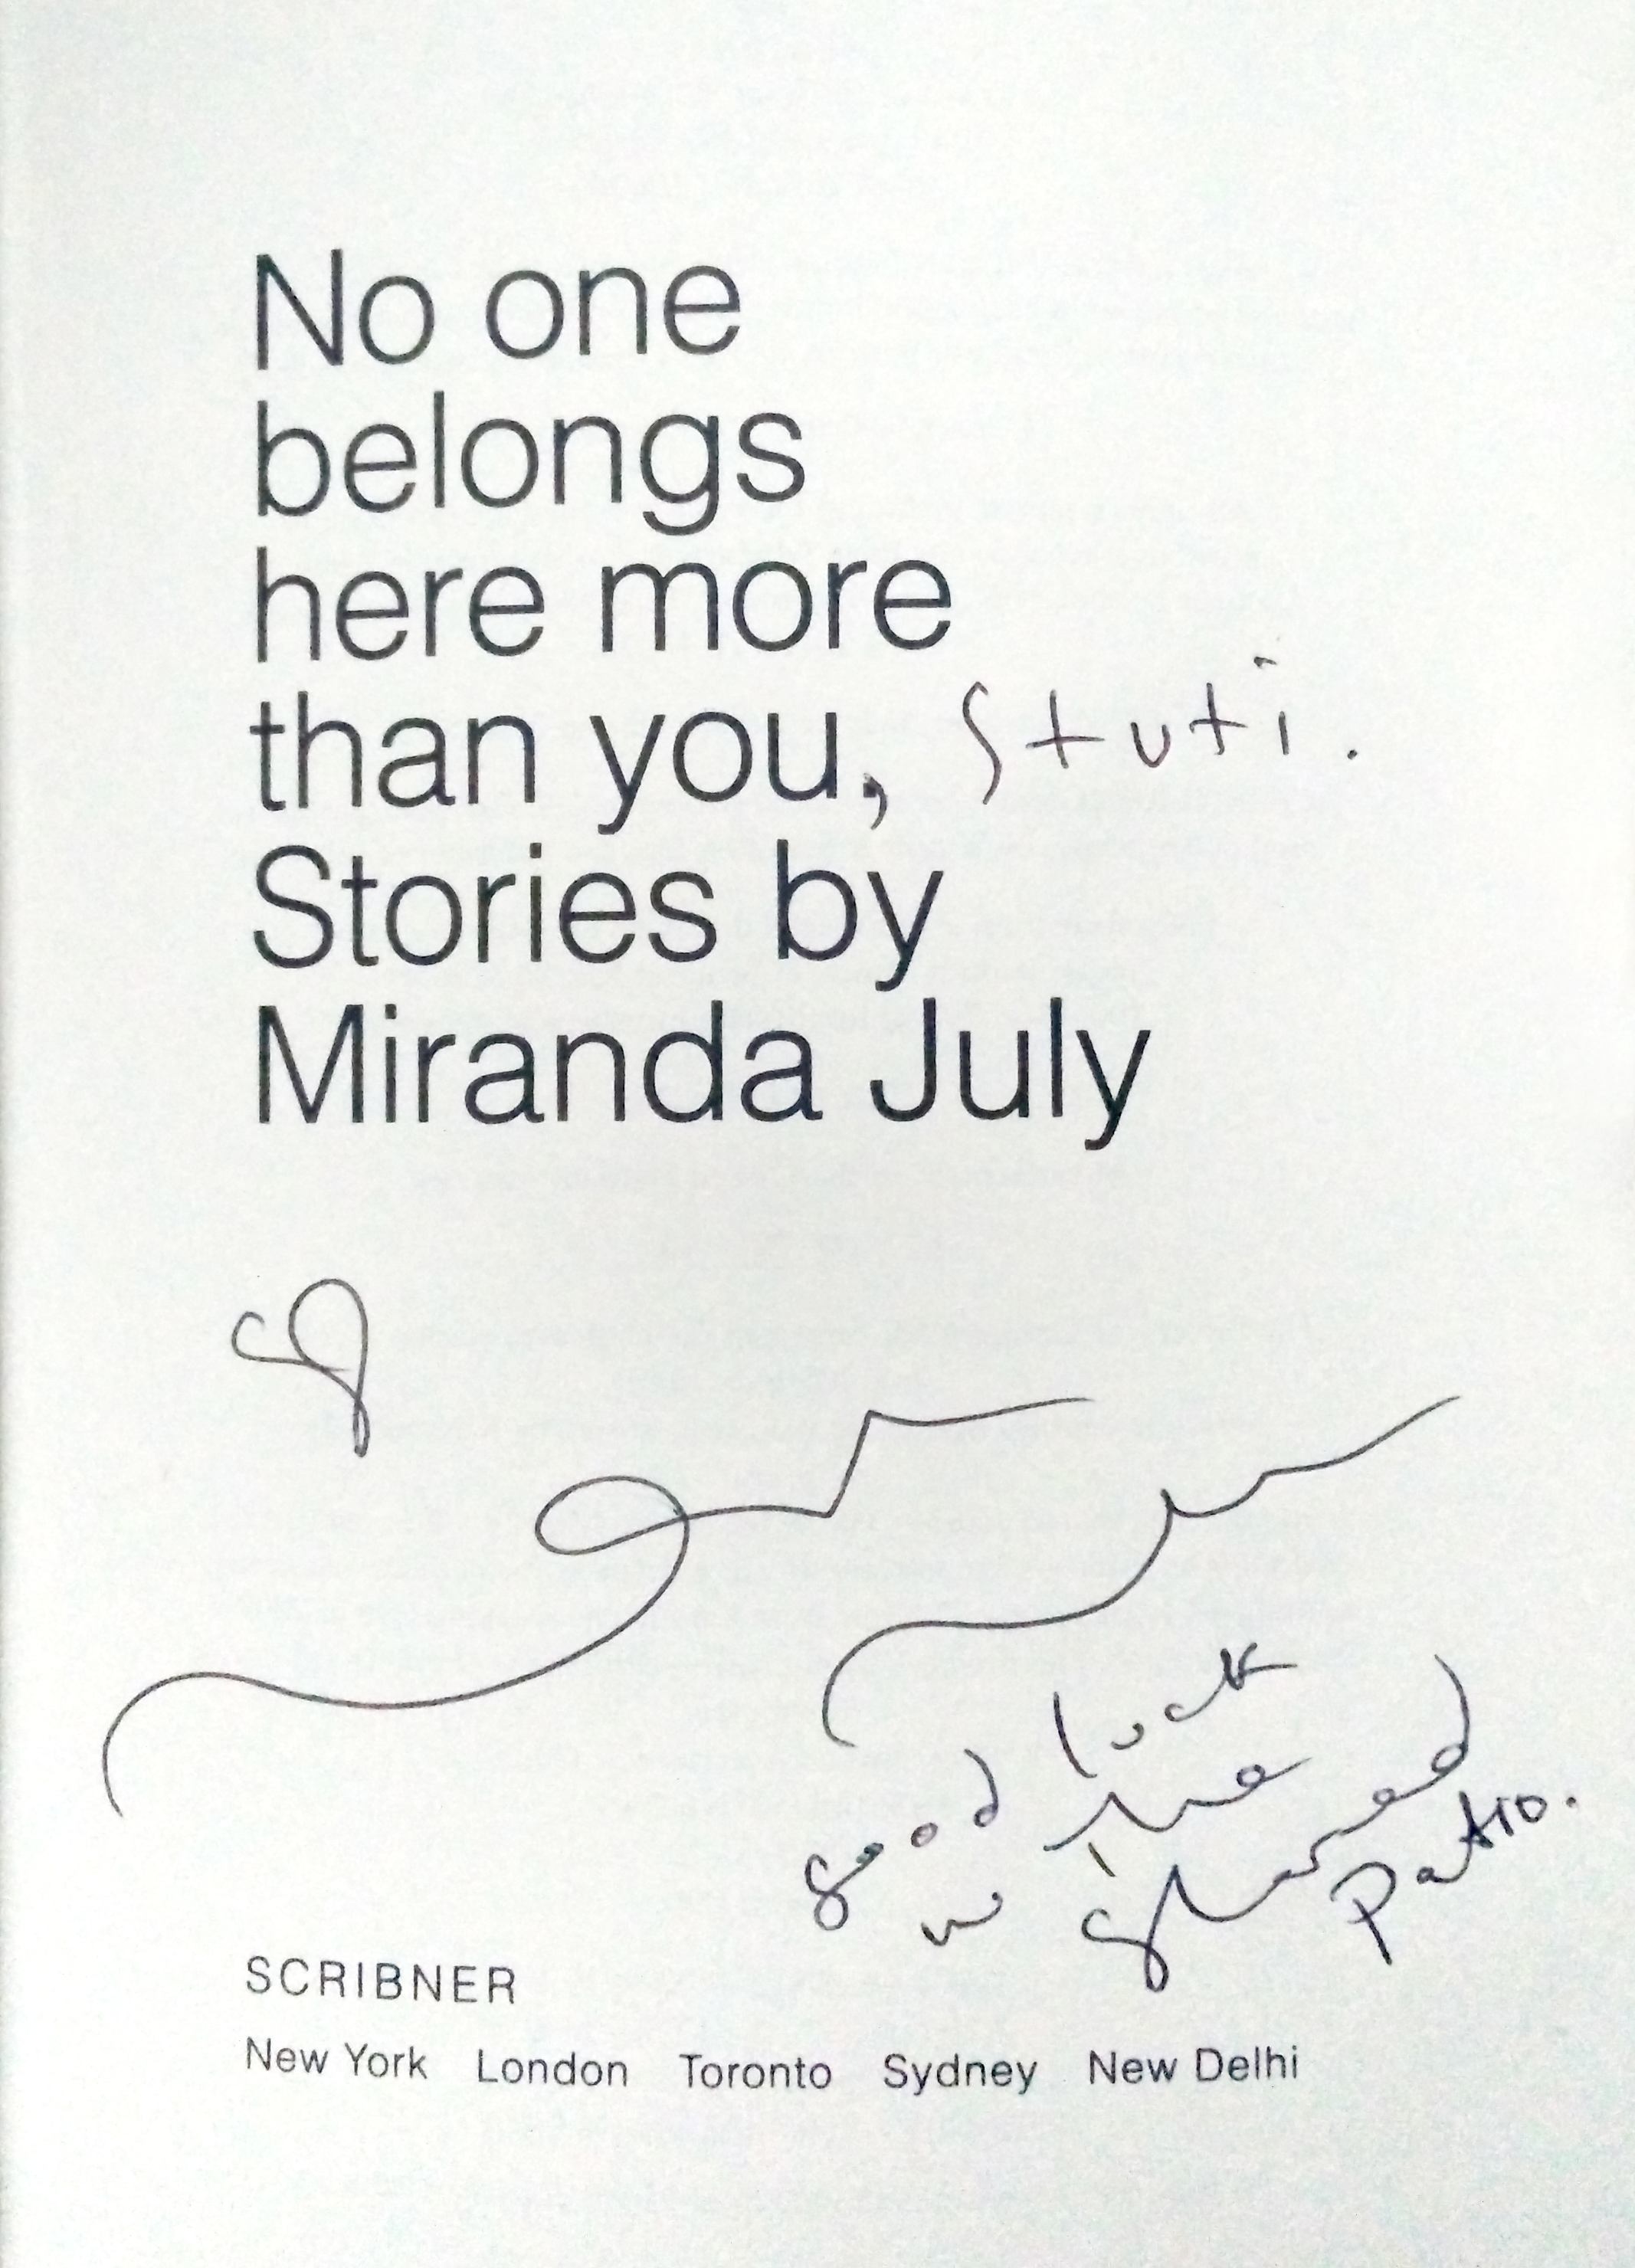 No one
belongs
here more
than you, Stuti.
Stories by
Miranda July
good luck
w/ the
shared
patio.
SCRIBNER
New York London Toronto Sydney New Delhi